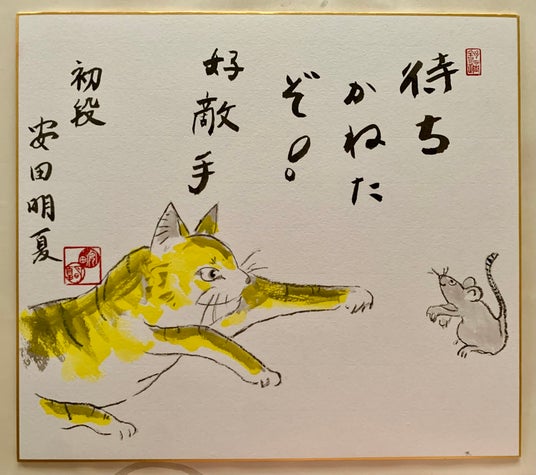 待ち
かねた
ぞ!
好敵手
初段
安田明夏